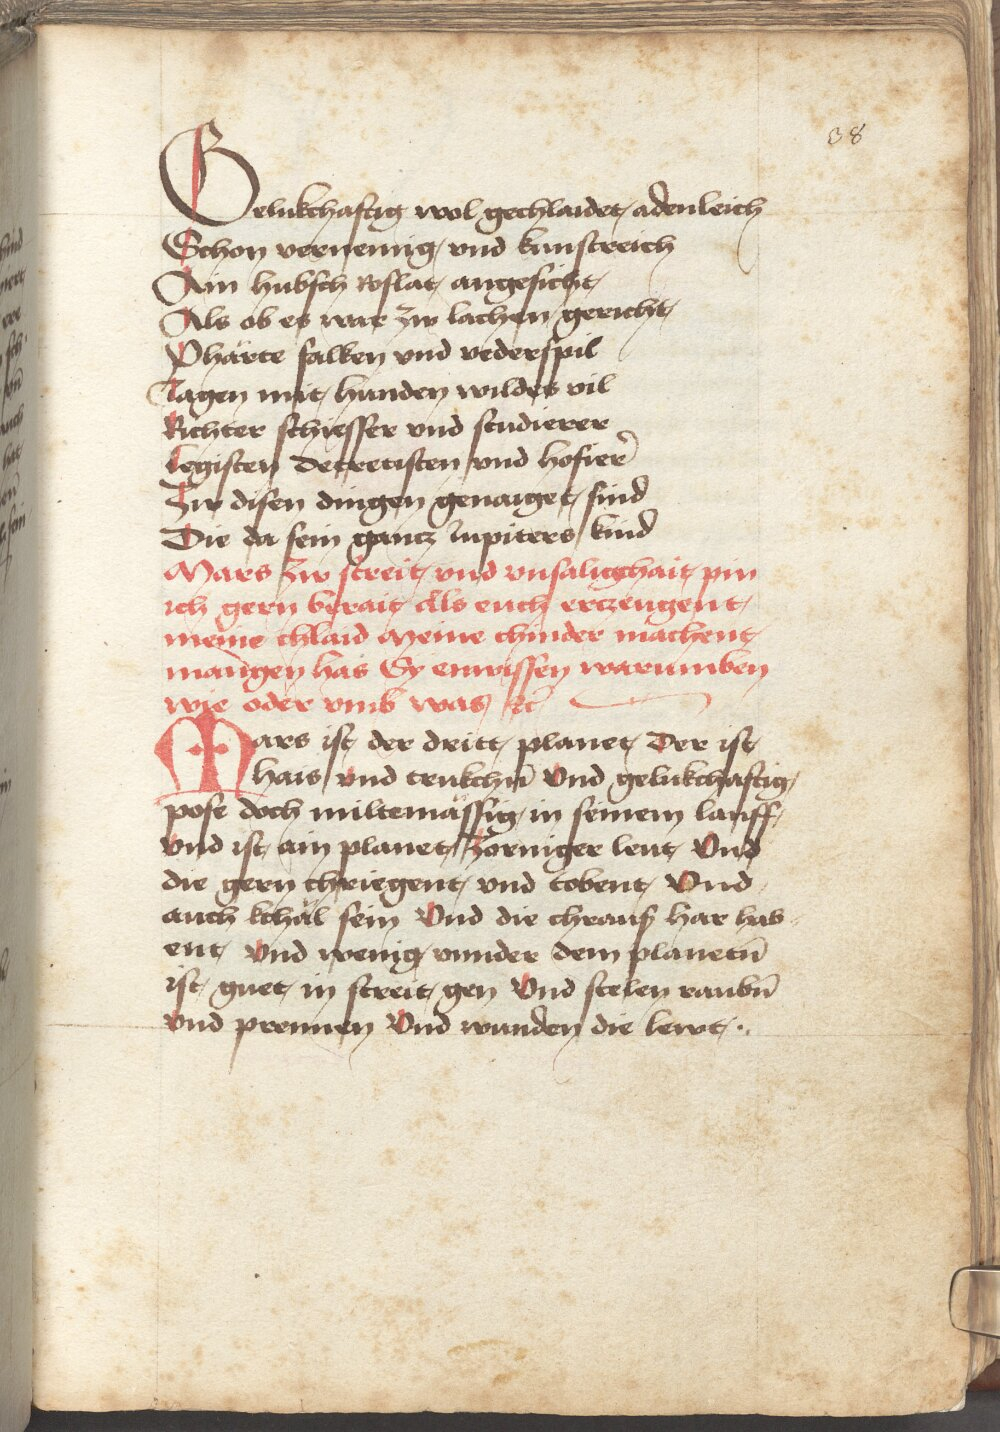 38
Gelukchaftig wol gechlaidet adenleich
Schon vernemig vnd kunstreich
Ain hubsch roslat angesicht
Als ob es war zw lachen gericht
Phärte falken vnd vederspil
Iagen mit hunden wildes vil
Richter schiesser vnd studierer
Legisten decretisten vnd hofier̄
Zw disen dingen genaiget sind
Die da sein gancz Iupiters kind
Mars zw streit vnd vnsaligchait pin
ich gern berait Als euch erczeugent
meine chlaid Meine chinder machent
mangen has Sy enwissen warumben
wie oder vmb was etc̄
Mars ist der dritt planet Der ist
hais vnd trukchn̄ Vnd gelukchaftig
pose doch miltemässig in seinem lauff
Vnd ist ain planet Zorniger leut Vnd
die gern chriegent vnd tobent Vnd
auch kchäl sein Vnd die chraus har hab
ent Vnd wenig vnnder dem planetn̄
ist guet in streit gen Vnd stelen raubn̄
Vnd prennen Vnd wunden die lewt